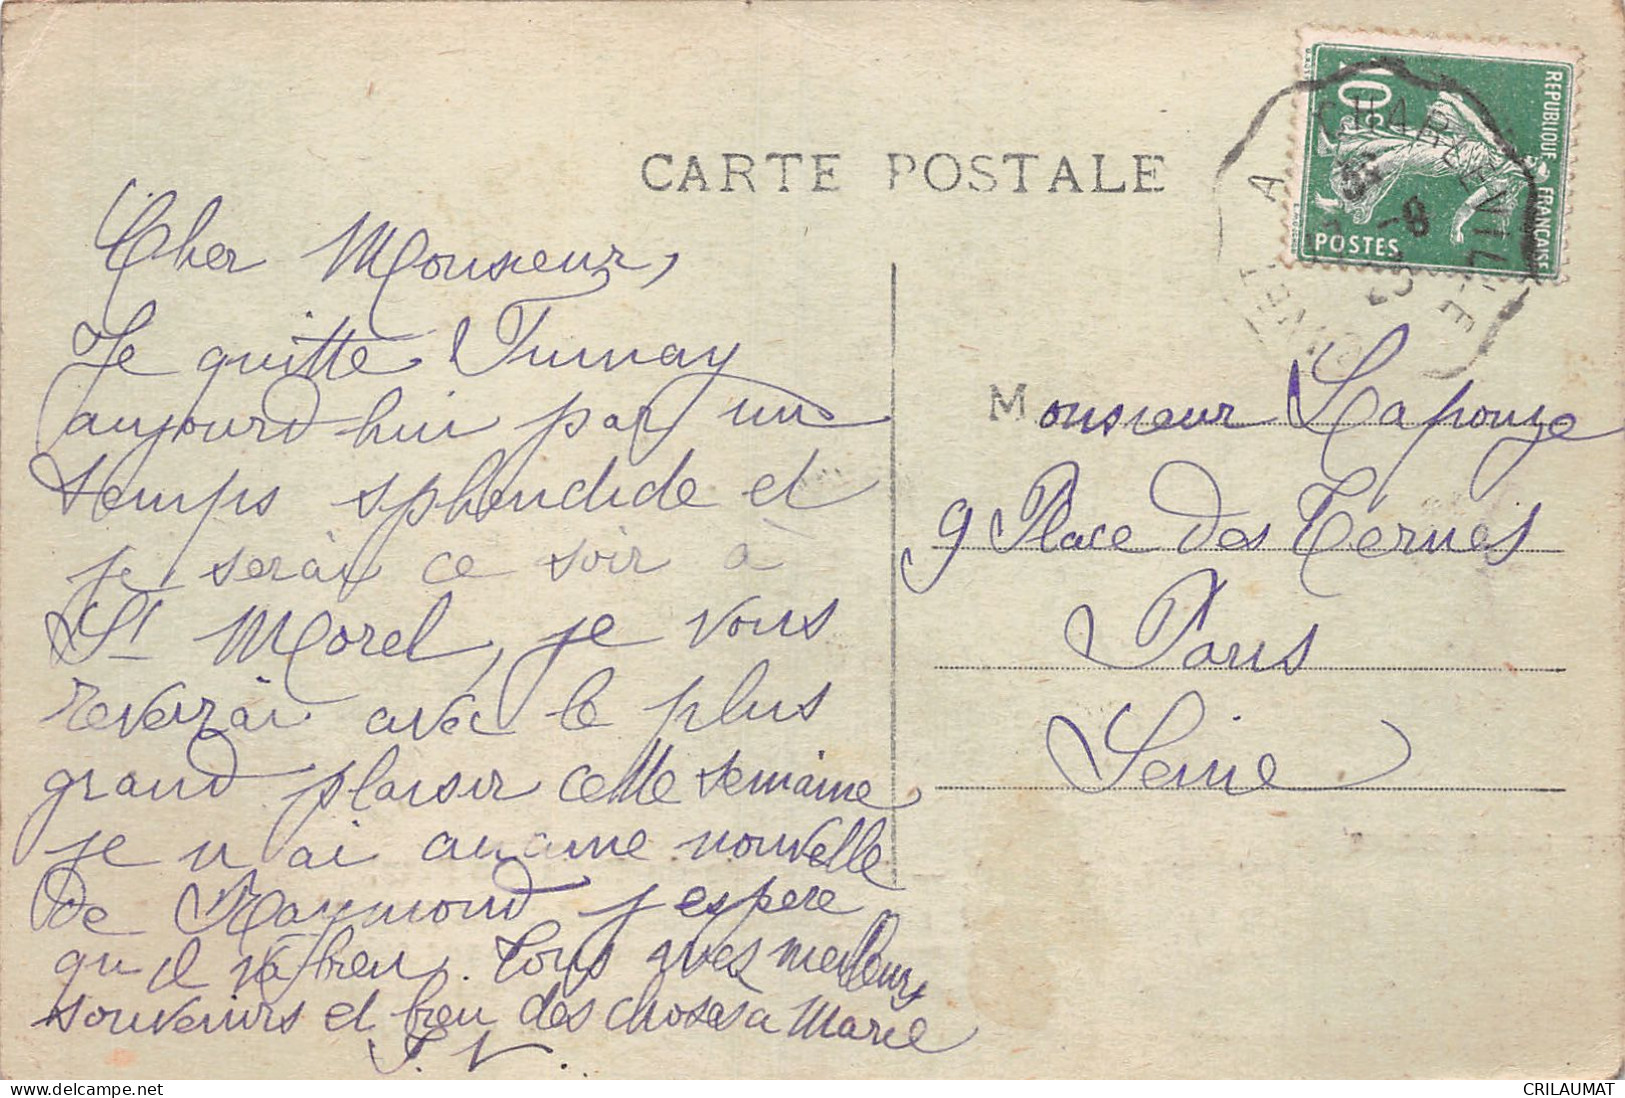 CARTE POSTALE
REPUBLIQUE FRANÇAISE
10c
POSTES
GIVET A CHARLEVILLE
Cher Monsieur,
Je quitte Fumay
aujourd hui par un
temps splendide et
je serai ce soir à
St Morel, je vous
reverrai avec le plus
grand plaisir cette semaine
je n ai aucune nouvelle
de Raymond j espere
qu il va bien. Tous mes meilleurs
souvenirs et bien des choses a Marie
Monsieur Lapouze
9 Place des Ternes
Paris
Seine
delcampe.net
CRILAUMAT